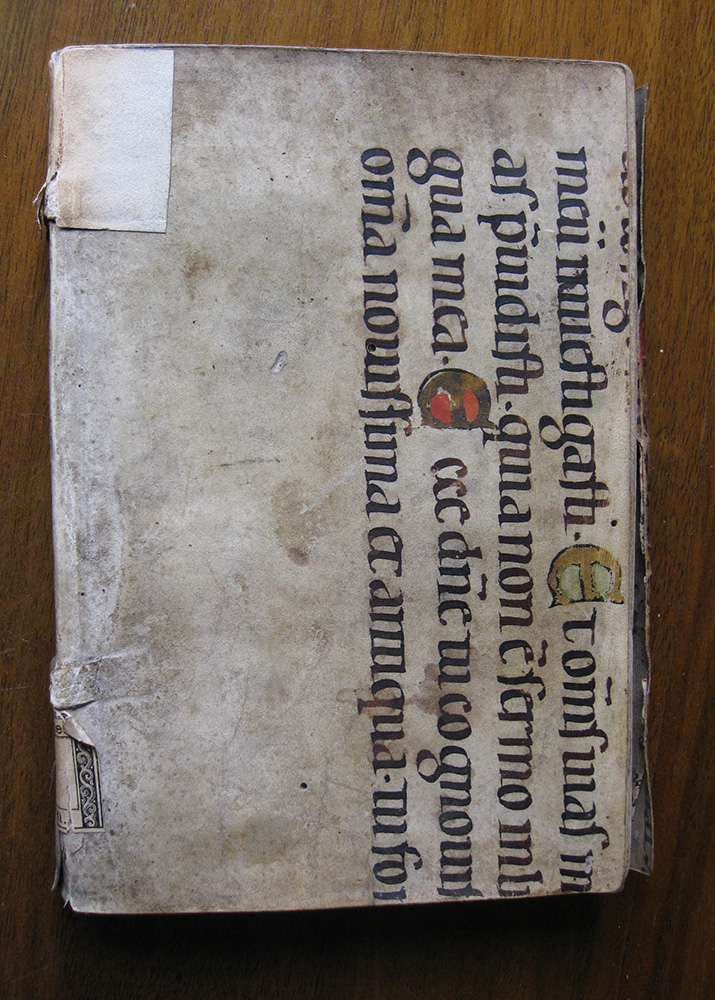 meū inueſtigaſti · Et om̄ſ uiaſ m
aſ p̄uidiſti · quia non ē ſermo in li
gua mea · Ecce dn̄e tu cognouiſ
om̄a nouiſſima et antiqua · tu for